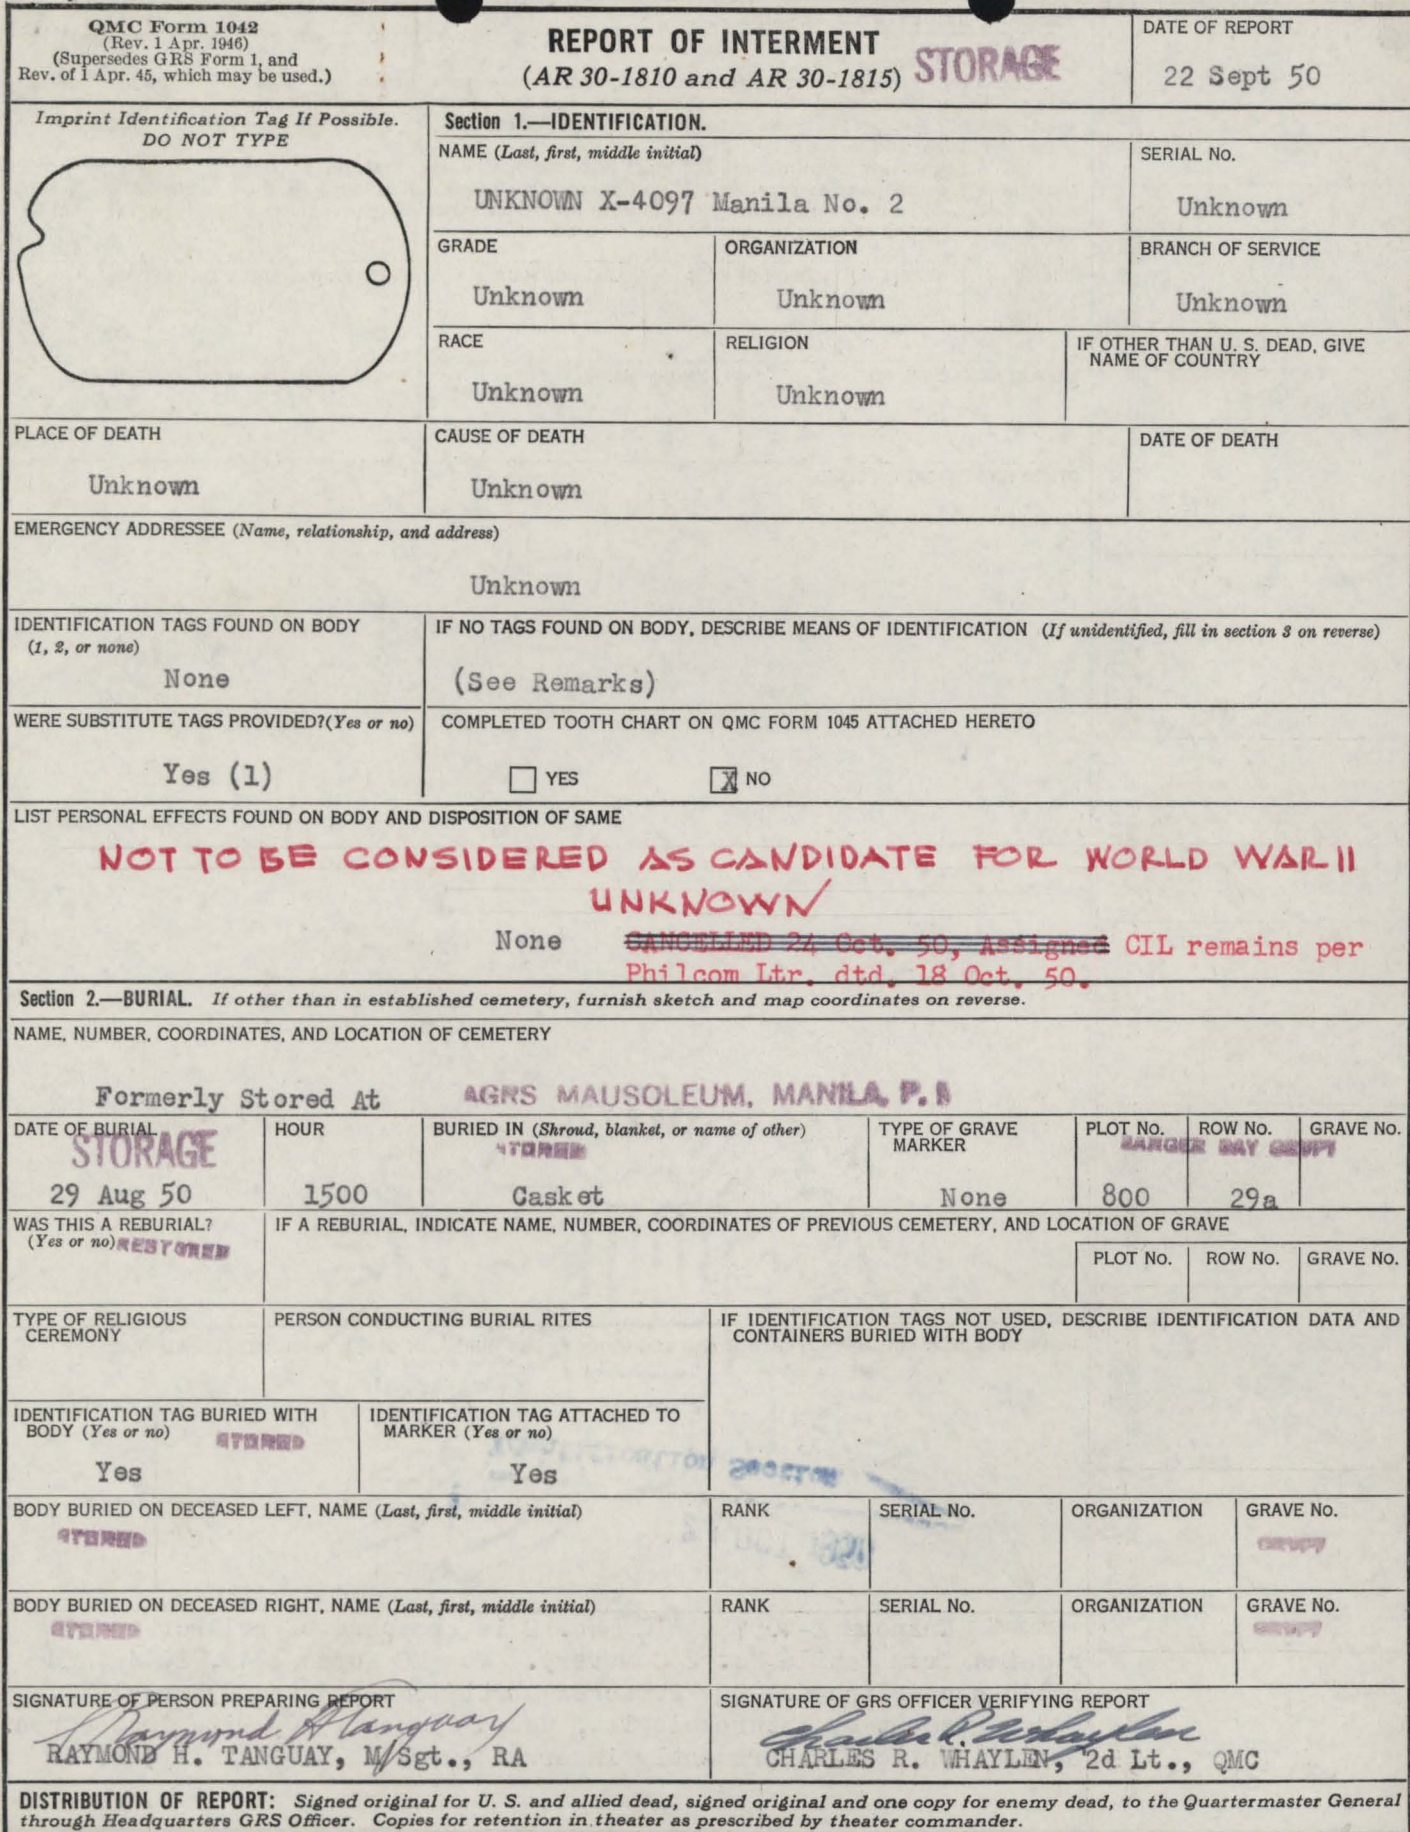 QMC Form 1042
(Rev. 1 Apr. 1946)
(Supersedes GRS Form 1, and
Rev. of 1 Apr. 45, which may be used.)
REPORT OF INTERMENT
(AR 30-1810 and AR 30-1815) STORAGE
DATE OF REPORT
22 Sept 50
Imprint Identification Tag If Possible.
DO NOT TYPE
Section 1.—IDENTIFICATION.
NAME (Last, first, middle initial)
UNKNOWN X-4097 Manila No. 2
SERIAL No.
Unknown
GRADE
Unknown
ORGANIZATION
Unknown
BRANCH OF SERVICE
Unknown
RACE
Unknown
RELIGION
Unknown
IF OTHER THAN U. S. DEAD, GIVE
NAME OF COUNTRY
PLACE OF DEATH
Unknown
CAUSE OF DEATH
Unknown
DATE OF DEATH
EMERGENCY ADDRESSEE (Name, relationship, and address)
Unknown
IDENTIFICATION TAGS FOUND ON BODY
(1, 2, or none)
None
IF NO TAGS FOUND ON BODY, DESCRIBE MEANS OF IDENTIFICATION (If unidentified, fill in section 3 on reverse)
(See Remarks)
WERE SUBSTITUTE TAGS PROVIDED?(Yes or no)
Yes (1)
COMPLETED TOOTH CHART ON QMC FORM 1045 ATTACHED HERETO
YES
X NO
LIST PERSONAL EFFECTS FOUND ON BODY AND DISPOSITION OF SAME
NOT TO BE CONSIDERED AS CANDIDATE FOR WORLD WAR II
UNKNOWN
None CANCELLED 24 Oct. 50, Assigned CIL remains per
Philcom Ltr. dtd. 18 Oct. 50.
Section 2.—BURIAL. If other than in established cemetery, furnish sketch and map coordinates on reverse.
NAME, NUMBER, COORDINATES, AND LOCATION OF CEMETERY
Formerly Stored At AGRS MAUSOLEUM, MANILA, P. I
DATE OF BURIAL
STORAGE
29 Aug 50
HOUR
1500
BURIED IN (Shroud, blanket, or name of other)
STORED
Casket
TYPE OF GRAVE
MARKER
None
PLOT No.
800
ROW No.
BAY
29a
GRAVE No.
CRYPT
WAS THIS A REBURIAL?
(Yes or no) RESTORED
IF A REBURIAL, INDICATE NAME, NUMBER, COORDINATES OF PREVIOUS CEMETERY, AND LOCATION OF GRAVE
PLOT No.
ROW No.
GRAVE No.
TYPE OF RELIGIOUS
CEREMONY
PERSON CONDUCTING BURIAL RITES
IF IDENTIFICATION TAGS NOT USED, DESCRIBE IDENTIFICATION DATA AND
CONTAINERS BURIED WITH BODY
IDENTIFICATION TAG BURIED WITH
BODY (Yes or no) STORED
Yes
IDENTIFICATION TAG ATTACHED TO
MARKER (Yes or no)
Yes
BODY BURIED ON DECEASED LEFT, NAME (Last, first, middle initial)
STORED
RANK
SERIAL No.
ORGANIZATION
GRAVE No.
CRYPT
BODY BURIED ON DECEASED RIGHT, NAME (Last, first, middle initial)
STORED
RANK
SERIAL No.
ORGANIZATION
GRAVE No.
CRYPT
SIGNATURE OF PERSON PREPARING REPORT
Raymond H Tanguay
RAYMOND H. TANGUAY, M/Sgt., RA
SIGNATURE OF GRS OFFICER VERIFYING REPORT
Charles R. Whaylen
CHARLES R. WHAYLEN, 2d Lt., QMC
DISTRIBUTION OF REPORT: Signed original for U. S. and allied dead, signed original and one copy for enemy dead, to the Quartermaster General
through Headquarters GRS Officer. Copies for retention in theater as prescribed by theater commander.